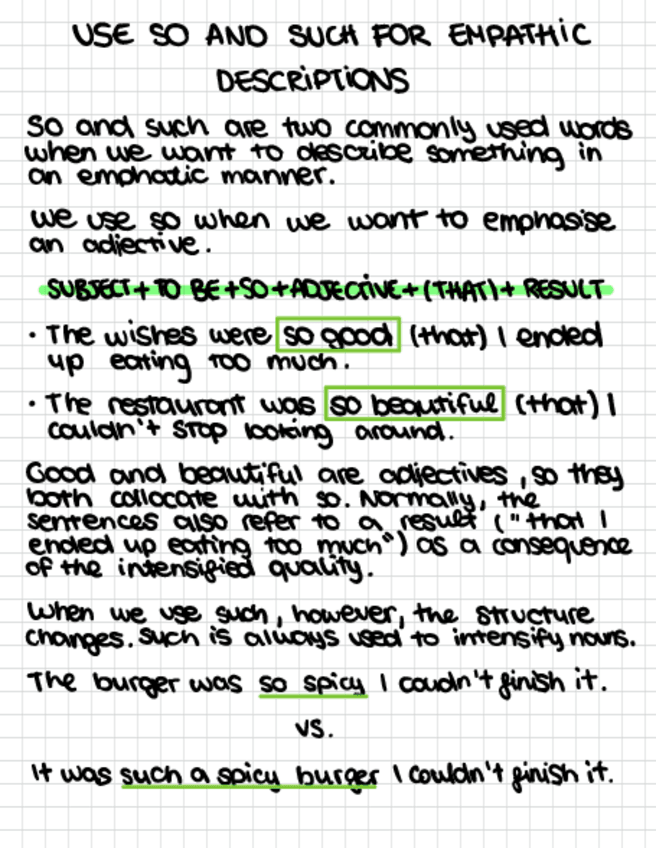 USE SO AND SUCH FOR EMPATHIC
DESCRIPTIONS
So and such are two commonly used words
when we want to describe something in
an emphatic manner.
We use so when we want to emphasise
an adjective.
SUBJECT + TO BE + SO + ADJECTIVE + (THAT) + RESULT
• The wishes were so good (that) I ended
up eating too much.
• The restaurant was so beautiful (that) I
couldn't stop looking around.
Good and beautiful are adjectives, so they
both collocate with so. Normally, the
sentences also refer to a result ("that I
ended up eating too much") as a consequence
of the intensified quality.
When we use such, however, the structure
changes. Such is always used to intensify nouns.
The burger was so spicy I coudn't finish it.
vs.
It was such a spicy burger I couldn't finish it.